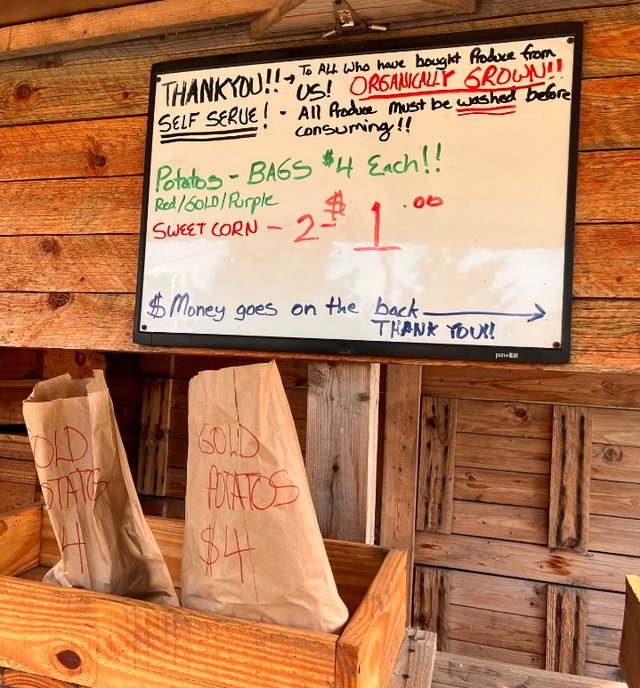 THANKYOU!! → To ALL Who have bought Produce from
US! ORGANICALLY GROWN!!
SELF SERVE! - All Produce Must be washed before
consuming!!
Potatos - BAGS $4 Each!!
Red/GOLD/Purple
SWEET CORN - 2 - $1.00
$ Money goes on the back →
THANK YOU!!
GOLD
POTATOS
$4
OLD
OTATOS
4